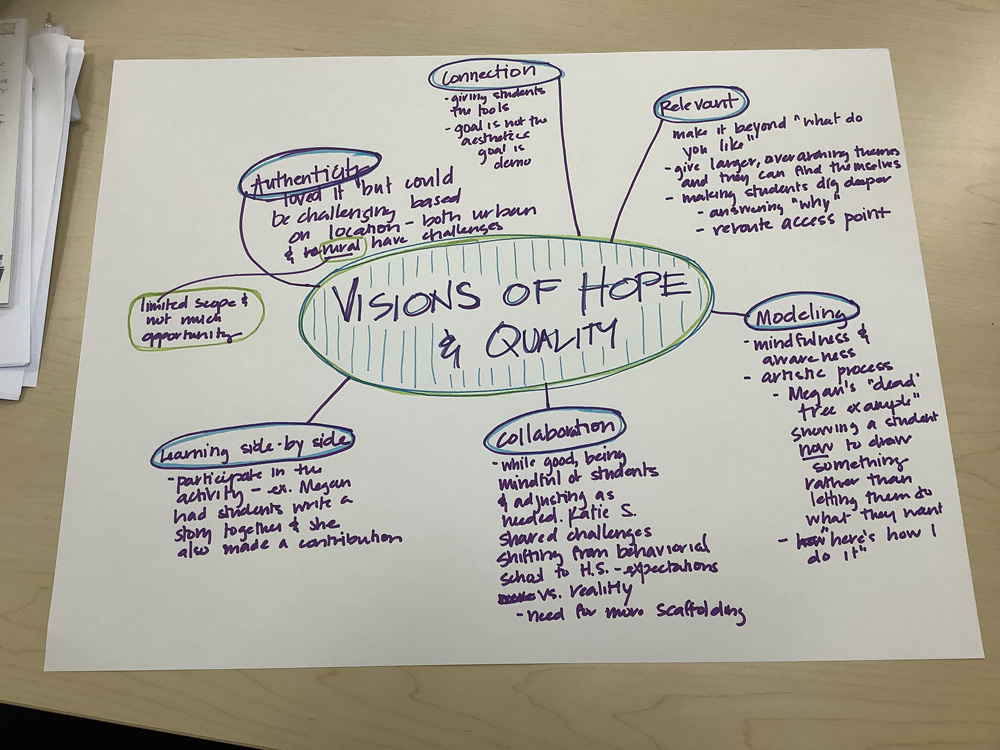 VISIONS OF HOPE
& QUALITY
Connection
- giving students
the tools
- goal is not the
aesthetics
goal is
demo
Relevant
make it beyond "what do
you like"
- give larger, overarching themes
and they can find themselves
- making students dig deeper
- answering "why"
- reroute access point
Authenticity
loved it "but could
be challenging based
on location - both urban
& rural have challenges
limited scope &
not much
opportunity
Modeling
- mindfulness &
awareness
- artistic process
- Megan's "dead
tree example"
showing a student
how to draw
something
rather than
letting them do
what they want
- "here's how I
do it"
Learning side-by side
- participate in the
activity - ex. Megan
had students write a
story together & she
also made a contribution
Collaboration
- while good, being
mindful of students
& adjusting as
needed. Katie S.
shared challenges
shifting from behaviorial
school to H.S. - expectations
vs. realitly
- need for more scaffolding